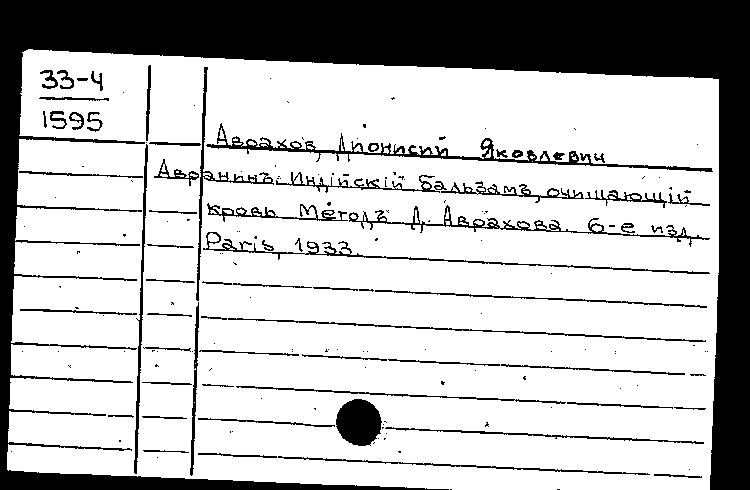 33-4
1595
Аврахов, Дионисий Яковлевич
Авранинъ. Индійскій бальзамъ, очищающій
кровь Методъ Д. Аврахова. 6-е изд.
Paris, 1933.